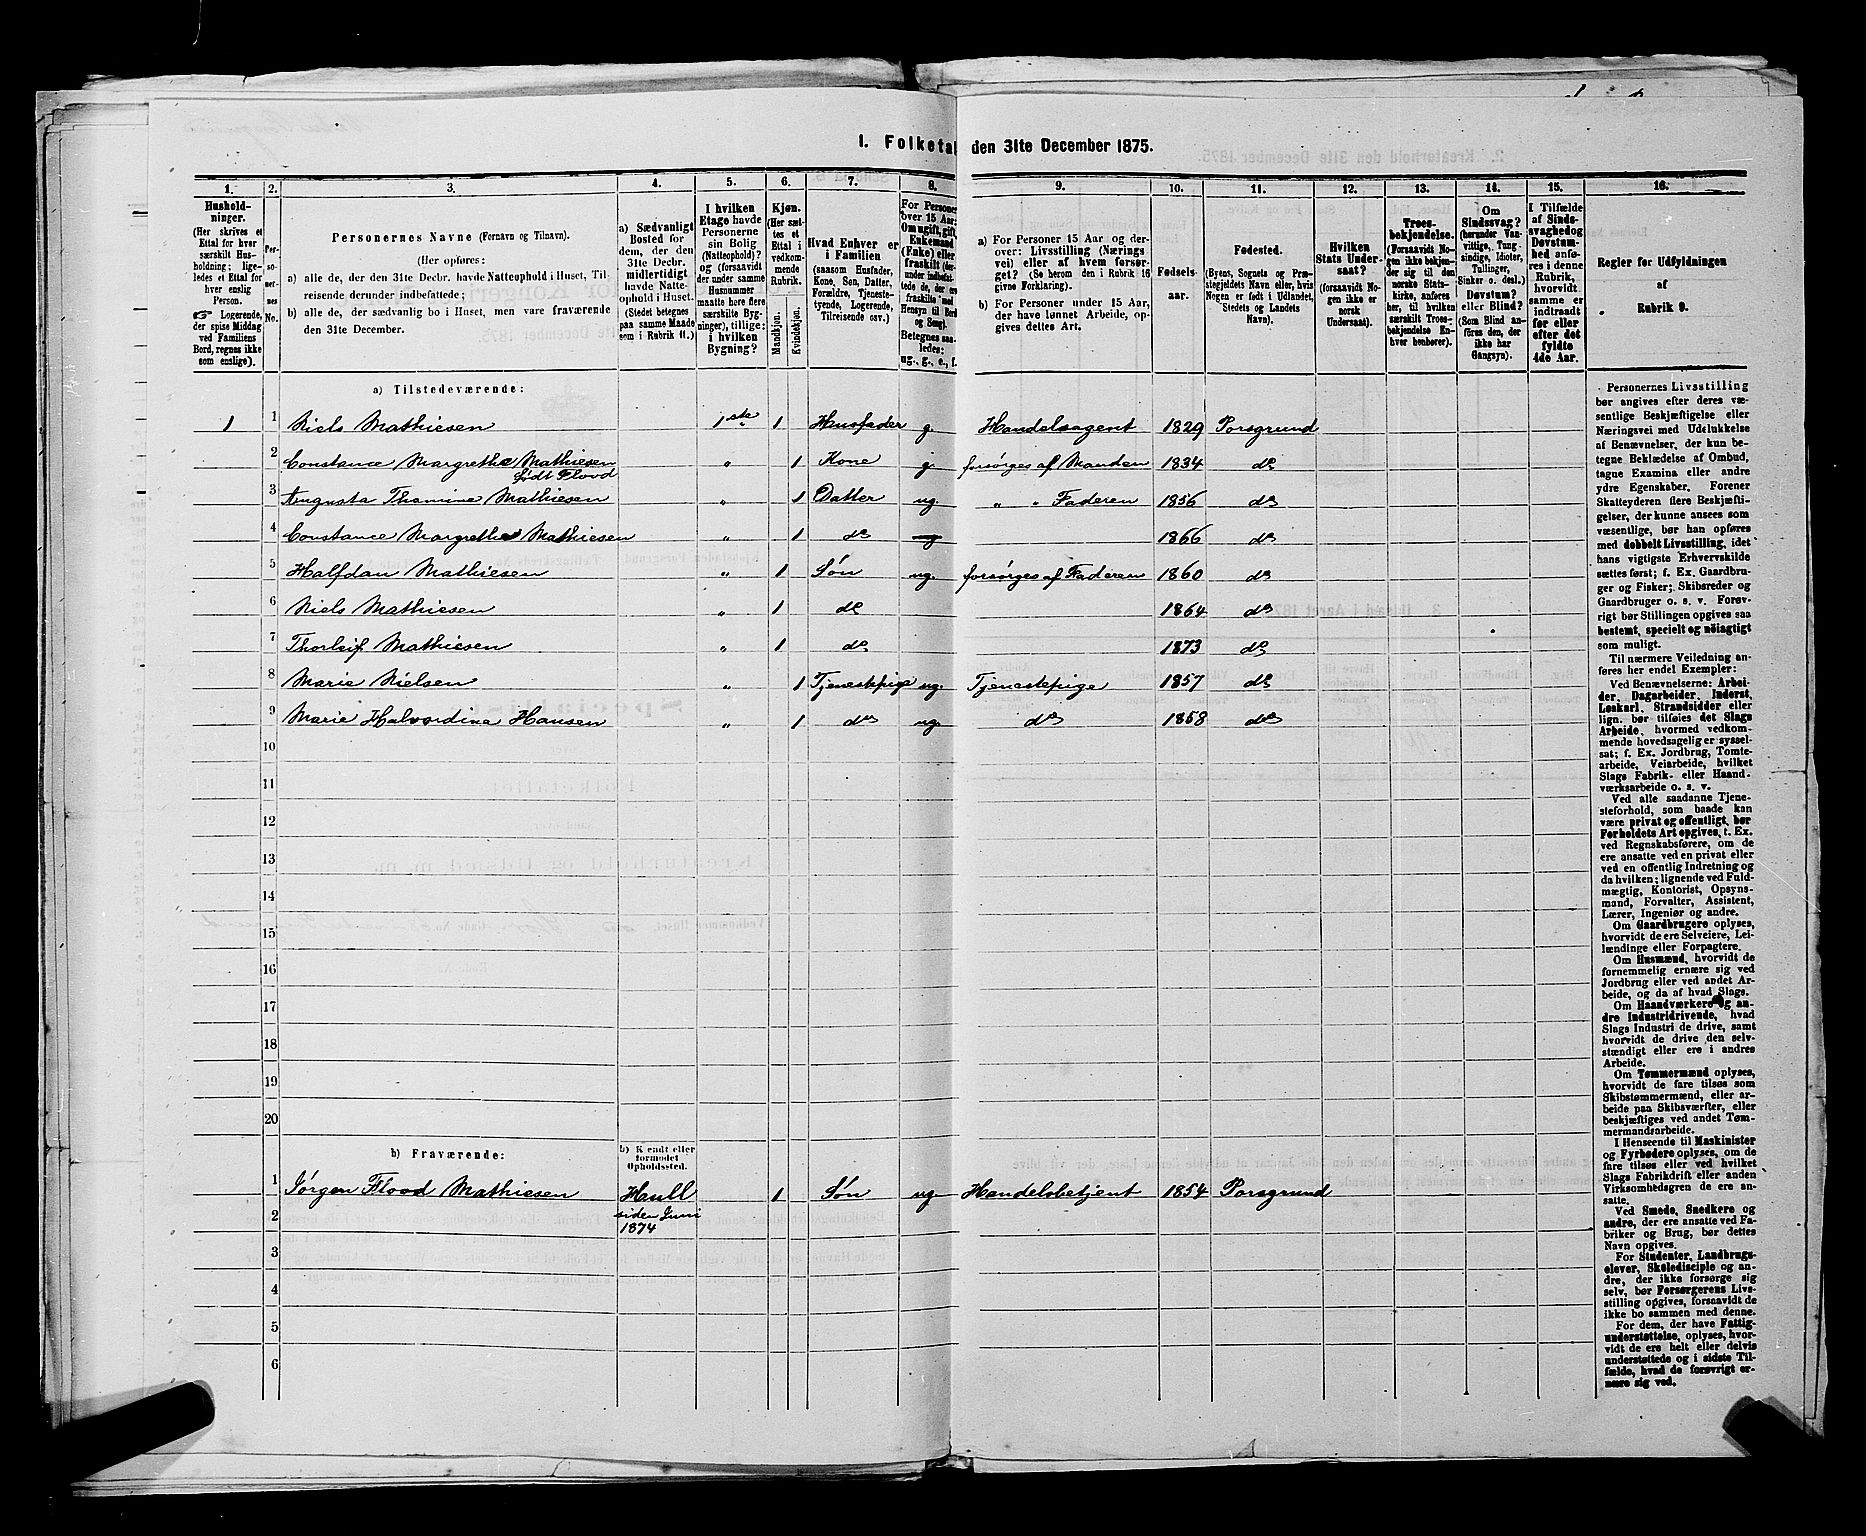 1. Folketal den 31te December 1875.
1. 2. 3. 4. 5. 6. 7. 8. 9. 10. 11. 12. 13. 14. 15. 16.
Hushold-
ninger.
(Her skrives et
Ettal for hver
særskilt Hus-
holdning; lige-
ledes et Ettal
for hver enslig
Person.
Logerende,
der spise Middag
ved Familiens
Bord, regnes ikke
som enslige).
Per-
so-
ner-
nes
No.
Personernes Navne (Fornavn og Tilnavn).
(Her opføres:
a) alle de, der den 31te Decbr. havde Natteophold i Huset, Til-
reisende derunder indbefattede;
b) alle de, der sædvanlig bo i Huset, men vare fraværende
den 31te December.
a) Sædvanligt
Bosted for
dem, der den
31te Decbr.
midlertidigt
havde Natte-
ophold i Huset.
(Stedet betegnes
paa samme Maade
som i Rubrik 11.)
I hvilken
Etage havde
Personerne
sin Bolig
(Natteophold)?
og (forsaavidt
der under samme
Husnummer
maatte høre flere
særskilte Byg-
ninger), tillige:
i hvilken
Bygning?
Kjøn.
(Her sæt-
tes et
Ettal i
vedkom-
mende
Rubrik.
Mandkjøn.
Kvindekjøn.
Hvad Enhver er
i Familien
(saasom Husfader,
Kone, Søn, Datter,
Forældre, Tjeneste-
tyende, Logerende,
Tilreisende osv.)
For Personer
over 15 Aar:
Om ugift, gift,
Enkemand
(Enke) eller
fraskilt
Betegnes saa-
ledes:
ug., g., e., f.
a) For Personer 15 Aar og der-
over: Livsstilling (Nærings
vei) eller af hvem forsør-
get? (Se herom den i Rubrik 16
givne Forklaring).
b) For Personer under 15 Aar,
der have lønnet Arbeide, op-
gives dettes Art.
Fødsels-
aar.
Fødested.
(Byens, Sognets og Præ-
stegjeldets Navn eller, hvis
Nogen er født i Udlandet,
Stedets og Landets
Navn).
Hvilken
Stats Under-
saat?
(forsaavidt No-
gen ikke er
norsk
Undersaat).
Troes-
bekjendelse.
(Forsaavidt No-
gen ikke beken-
der sig til den
norske Stats-
kirke, anføres
her, til hvilken
særskilt Troes-
bekjendelse En-
hver henhører).
Om
Sindssvag?
(herunder Van-
vittige, Tung-
sindige, Idioter,
Tullinger,
Sinker o. desl.)
Døvstum?
eller Blind?
(Som Blind an-
føres den, der
ikke har
Gangsyn).
I Tilfælde
af Sinds-
svaghed og
Døvstum-
hed anfø-
res i denne
Rubrik,
hvorvidt
samme er
indtraadt
før eller
efter det
fyldte
4de Aar.
Regler for Udfyldningen
af
Rubrik 9.
a) Tilstedeværende:
1 1 Niels Mathiesen 1ste 1 Husfader g. Handelsagent 1829 Porsgrund
2 Constance Margrethe Mathiesen " 1 Kone g. forsørges af Manden 1834 do
født Flood
3 Augusta Thamine Mathiesen " 1 Datter ug. " " Faderen 1856 do
4 Constance Margrethe Mathiesen " 1 do ug 1866 do
5 Halfdan Mathiesen " 1 Søn ug. forsørges af Faderen 1860 do
6 Niels Mathiesen " 1 do 1864 do
7 Thorleif Mathiesen " 1 do 1873 do
8 Marie Nielsen " 1 Tjenestepige ug. Tjenestepige 1857 do
9 Marie Halvordine Hansen " 1 do ug. do 1858 do
10
11
12
13
14
15
16
17
18
19
20
b) Fraværende:
b) Kjendt eller
formodet
Opholdssted.
1 Jørgen Flood Mathiesen Hull 1 Søn ug Handelsbetjent 1854 Porsgrund
2 siden Juni
1874
3
4
5
6
Personernes Livsstilling
bør angives efter deres væ-
sentlige Beskjæftigelse eller
Næringsvei med Udelukkelse
af Benævnelser, der kun be-
tegne Beklædelse af Ombud,
tagne Examina eller andre
ydre Egenskaber. Forener
Skatteyderen flere Beskjæfti-
gelser, der kunne ansees som
væsentlige, bør han opføres
med dobbelt Livsstilling, idet
hans vigtigste Erhvervskilde
sættes først; f. Ex. Gaardbru-
ger og Fisker; Skibsreder og
Gaardbruger o. s. v. Forøv-
rigt bør Stillingen opgives saa
bestemt, specielt og nøiagtigt
som muligt.
Til nærmere Veiledning an-
føres her endel Exempler:
Ved Benævnelserne: Arbei-
der, Dagarbeider, Inderst,
Løskarl, Strandsidder eller
lign. bør tilføies det Slags
Arbeide, hvormed vedkom-
mende hovedsagelig er syssel-
sat; f. Ex. Jordbrug, Tomte-
arbeide, Veiarbeide, hvilket
Slags Fabrik- eller Haand-
værksarbeide o. s. v.
Ved alle saadanne Tjene-
steforhold, som baade kan
være privat og offentligt, bør
Forholdets Art opgives, t. Ex.
ved Regnskabsførere, om de
ere ansatte ved en privat eller
ved en offentlig Indretning og
da hvilken; lignende ved Fuld-
mægtig, Kontorist, Opsyns-
mand, Forvalter, Assistent,
Lærer, Ingeniør og andre.
Om Gaardbrugere oplyses,
hvorvidt de ere Selveiere, Lei-
lændinge eller Forpagtere.
Om Husmænd, hvorvidt de
fornemmelig ernære sig ved
Jordbrug eller ved andet Ar-
beide, og da af hvad Slags.
Om Haandværkere og an-
dre Industridrivende, hvad
Slags Industri de drive, samt
hvorvidt de drive den selv-
stændigt eller ere i andres
Arbeide.
Om Tømmermænd oplyses,
hvorvidt de fare tilsøs som
Skibstømmermænd, eller ar-
beide paa Skibsværfter, eller
beskjæftiges ved andet Tøm-
mermandsarbeide.
I Henseende til Maskinister
og Fyrbødere oplyses, om de
fare tilsøs eller ved hvilket
Slags Fabrikdrift eller anden
Virksomhedsgren de ere an-
satte.
Ved Smede, Snedkere og
andre, der ere ansatte ved Fa-
briker og Brug, bør dettes
Navn opgives.
For Studenter, Landbrugs-
elever, Skoledisciple og an-
dre, der ikke forsørge sig
selv, bør Forsørgerens Livs-
stilling opgives, forsaavidt de
ikke bo sammen med denne.
For dem, der have Fattig-
understøttelse, oplyses, hvor-
vidt de ere helt eller delvis
understøttede og i sidste Til-
fælde, hvad de forøvrigt er-
nære sig ved.